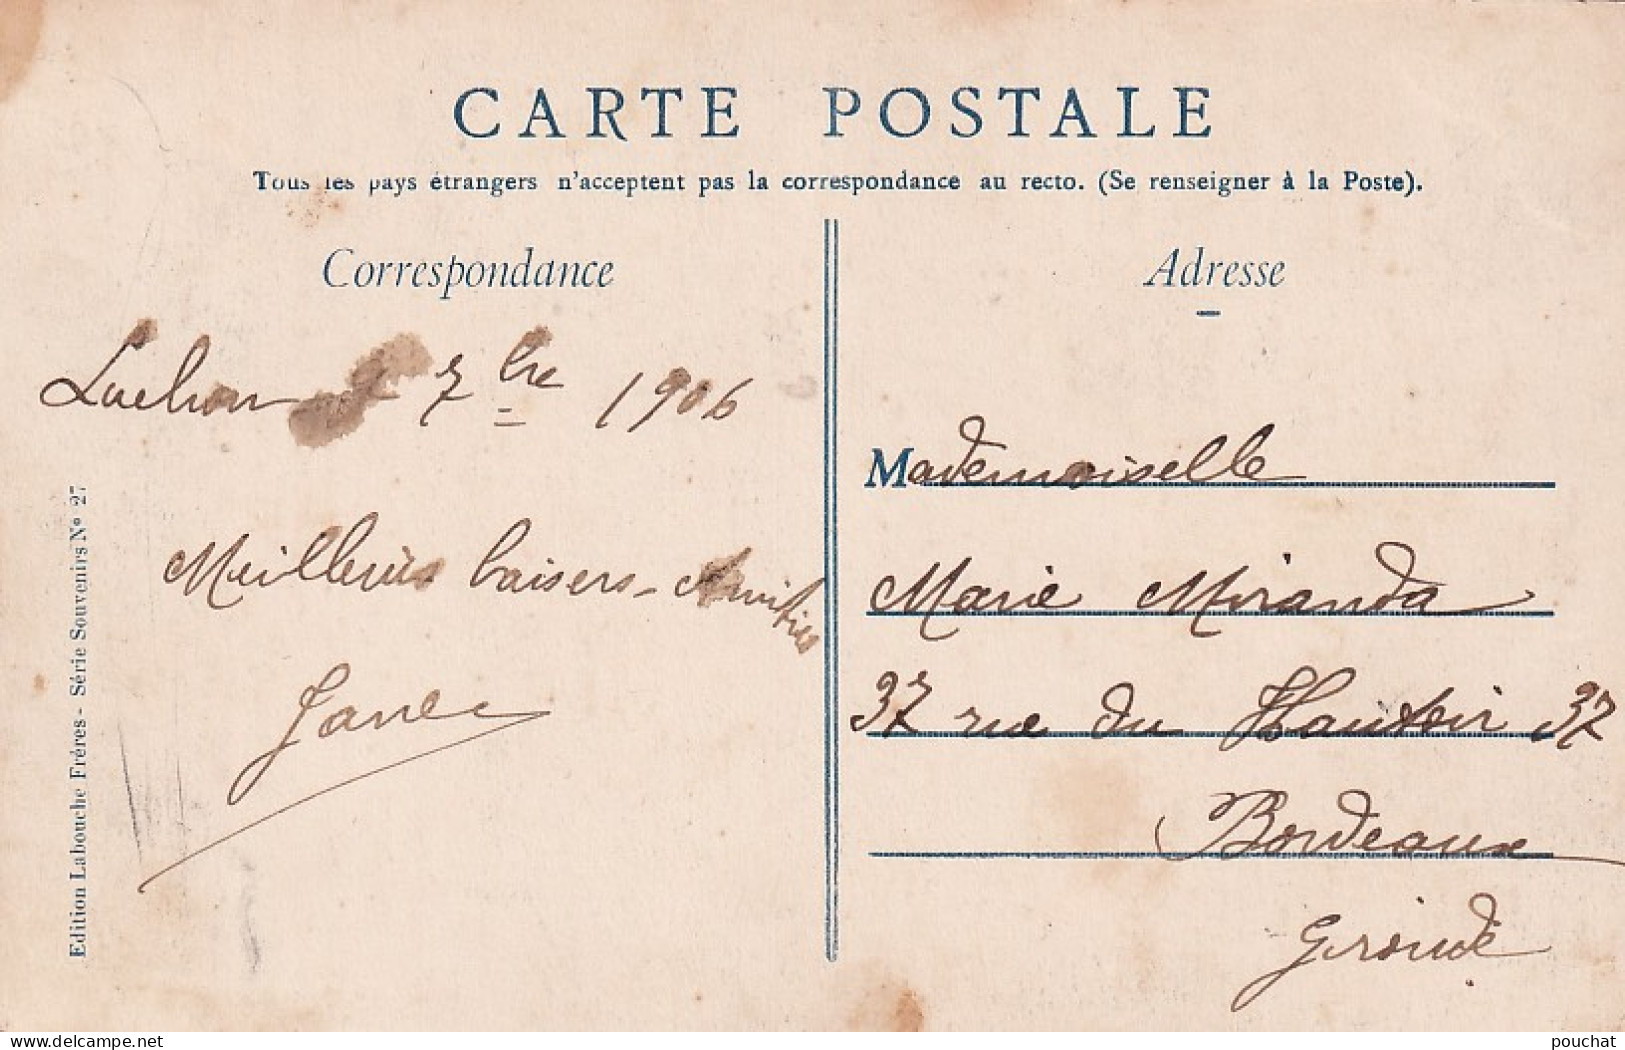 CARTE POSTALE
Tous les pays étrangers n'acceptent pas la correspondance au recto. (Se renseigner à la Poste).
Correspondance
Luchon 7bre 1906
Meilleurs baisers - Amitiés
Jane
Edition Labouche Frères - Série Souvenirs N° 27
Adresse
Mademoiselle
Marie Miranda
37 rue du Hautoir 37
Bordeaux
Gironde
delcampe.net
pouchat